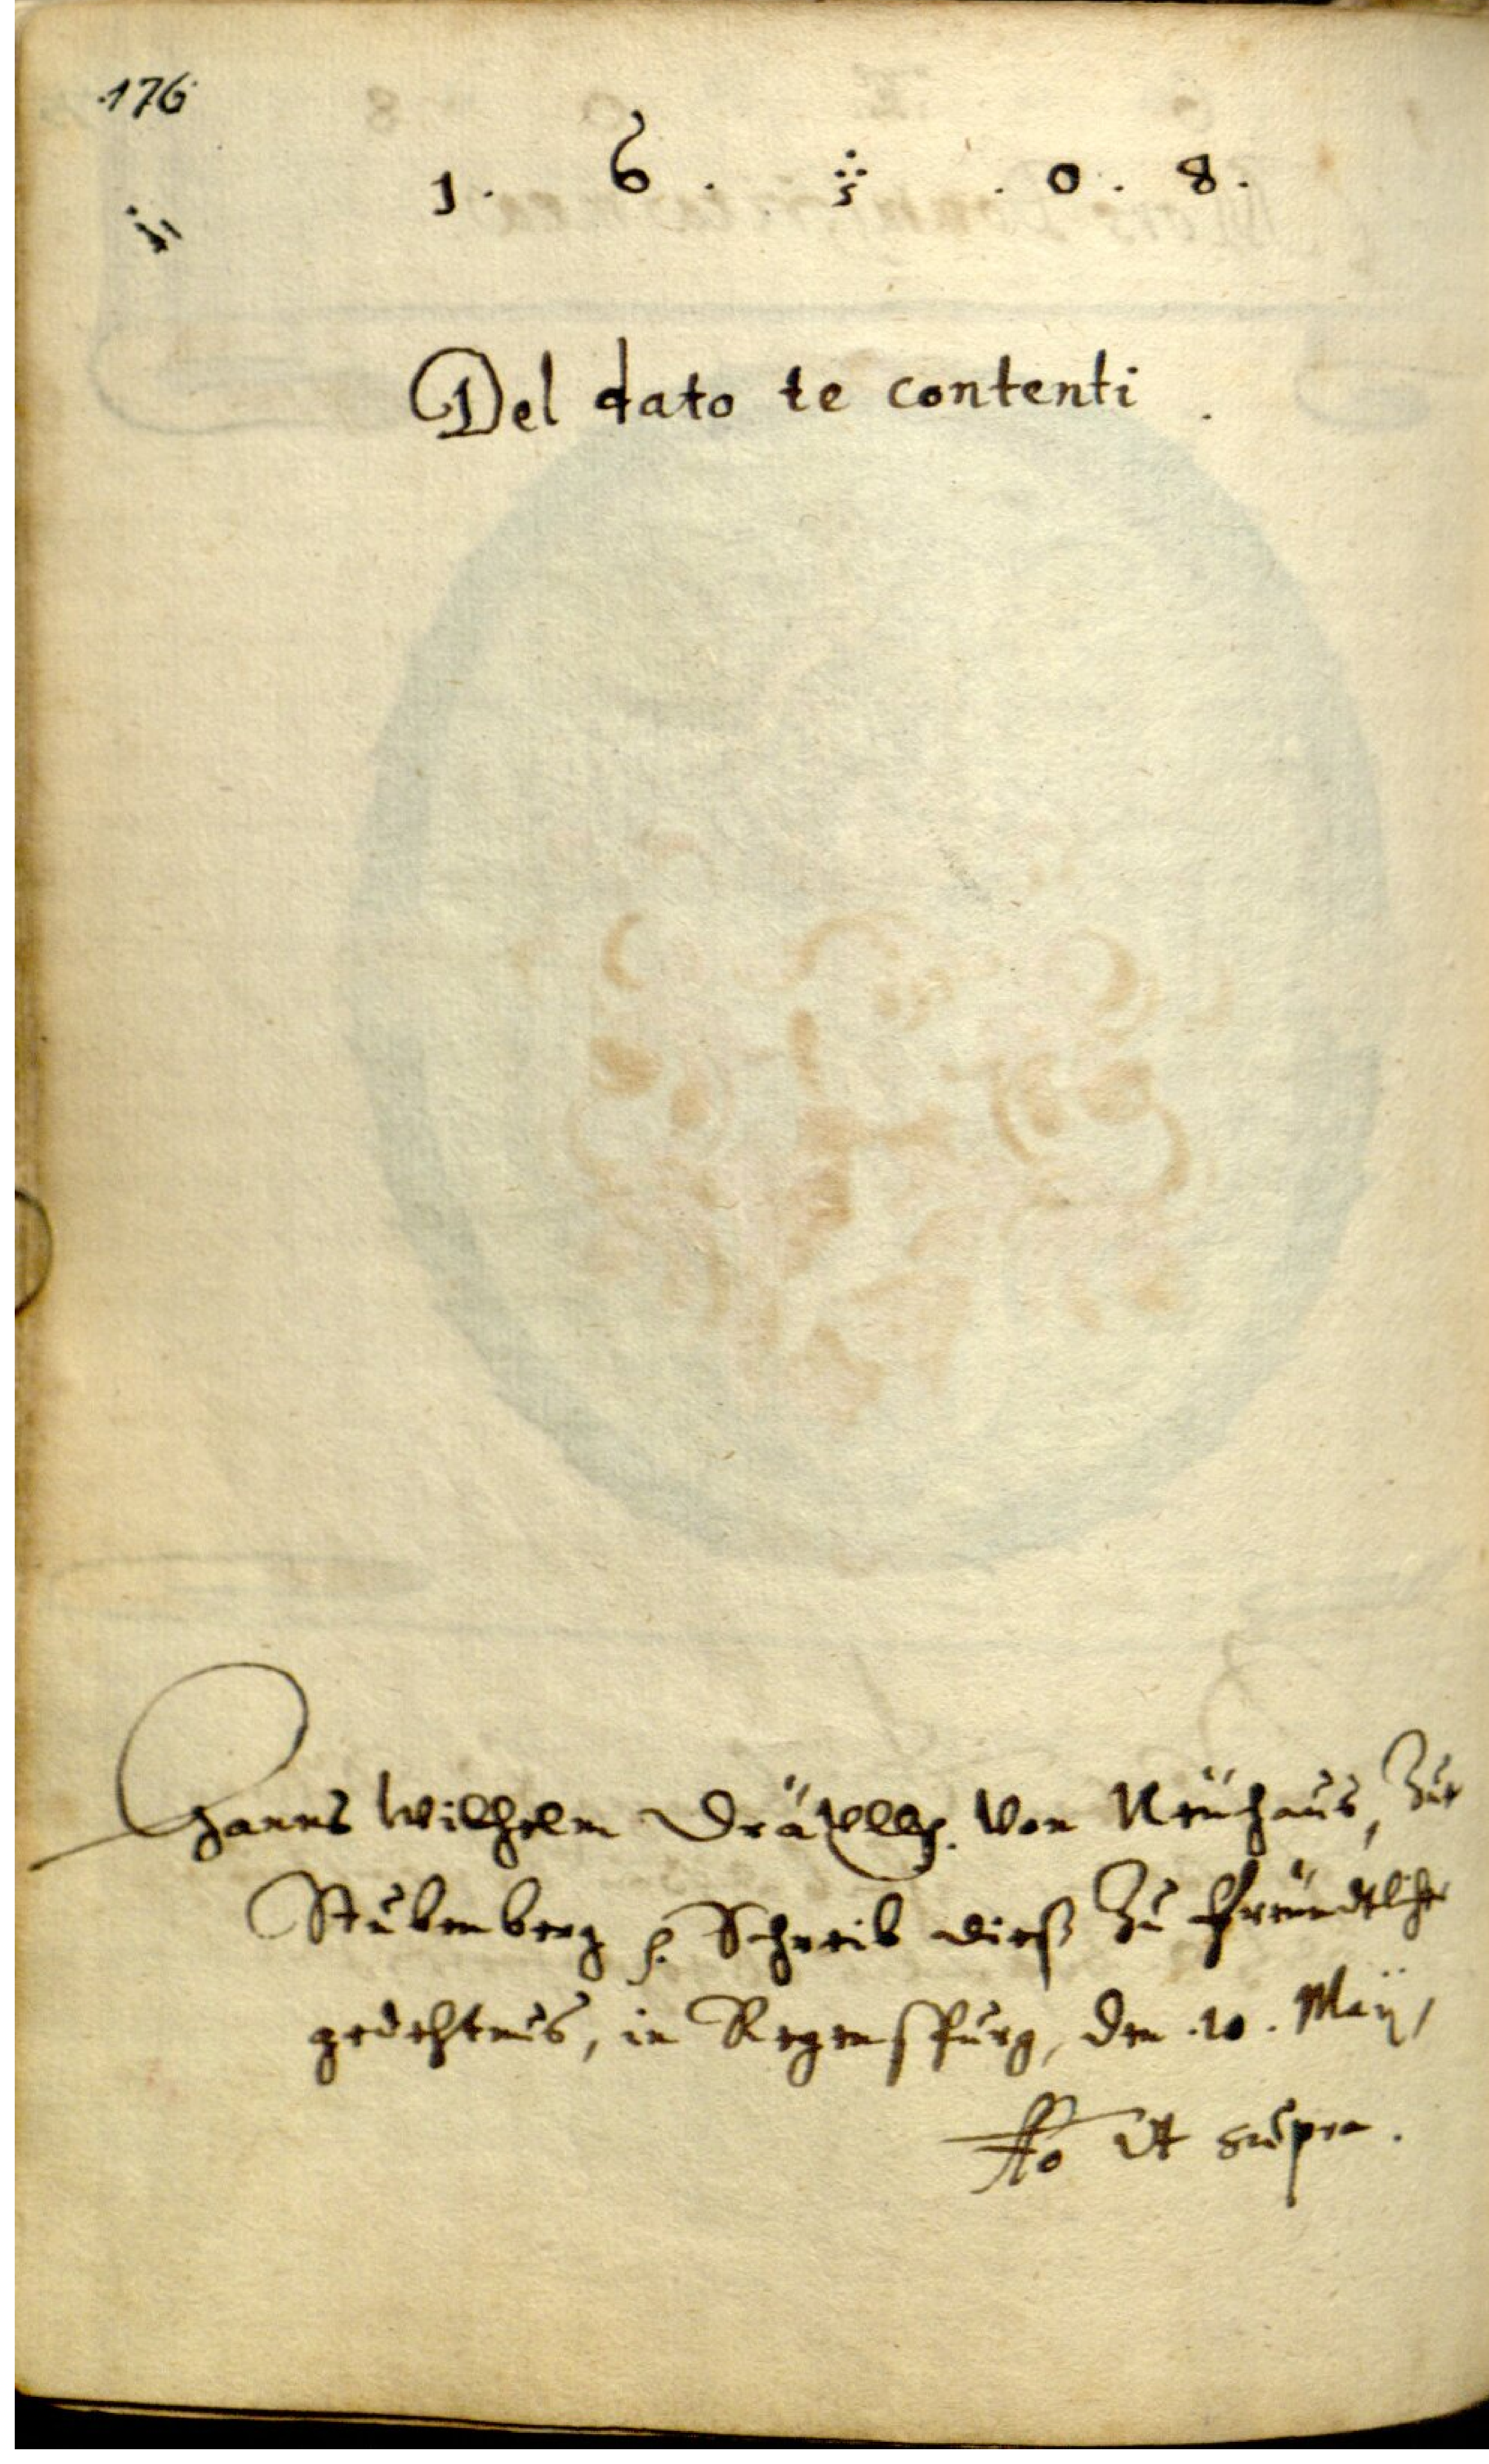 176
1 . 6 . . 0 . 8 .
Del dato te contenti .
Hanns Wilhelm von Neühaus, Zur
Stubenberg Schreib dieß Zu freündtlicher
gedechtnus, in Regenspurg, den .10. Maÿ,
Ao Ut supra .